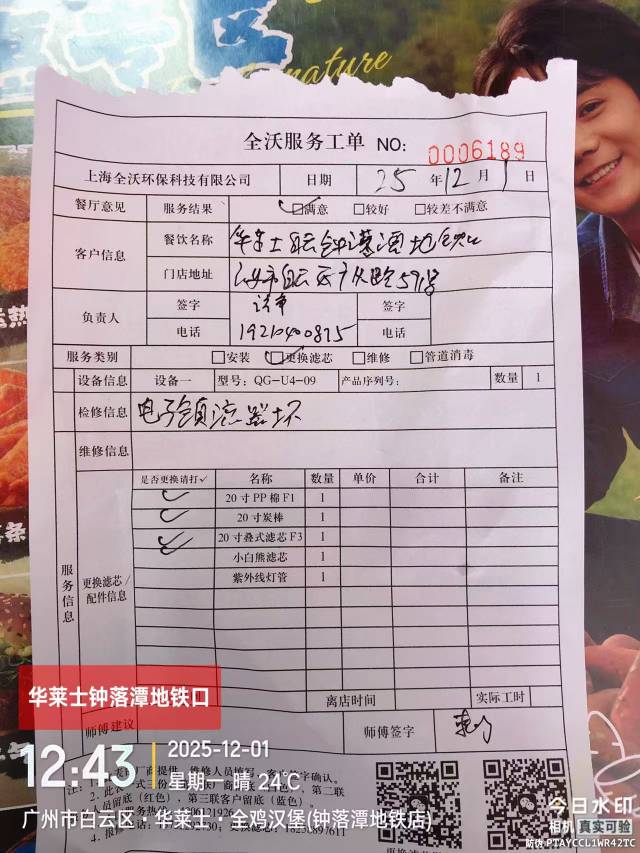 nature
全沃服务工单 NO: 0006189
上海全沃环保科技有限公司 日期 25 年 12 月 1 日
餐厅意见 服务结果 满意 较好 较差不满意
客户信息 餐饮名称
门店地址
负责人 签字 签字
电话 19210400875 电话
服务类别 安装 更换滤芯 维修 管道消毒
设备信息 设备一 型号: QG-U4-09 产品序列号: 数量 1
检修信息 电子镇流器坏
维修信息
服务信息
是否更换请打✓ 名称 数量 单价 合计 备注
20寸PP棉F1 1
20寸炭棒 1
20寸叠式滤芯F3 1
更换滤芯/配件信息
小白熊滤芯 1
紫外线灯管 1
离店时间 实际工时
师傅建议 师傅签字
华莱士钟落潭地铁口
12:43
2025-12-01
星期一 晴 24℃
广州市白云区·华莱士·全鸡汉堡(钟落潭地铁店)
今日水印
相机 真实可验
防伪 PTAYCCL1WR42TC